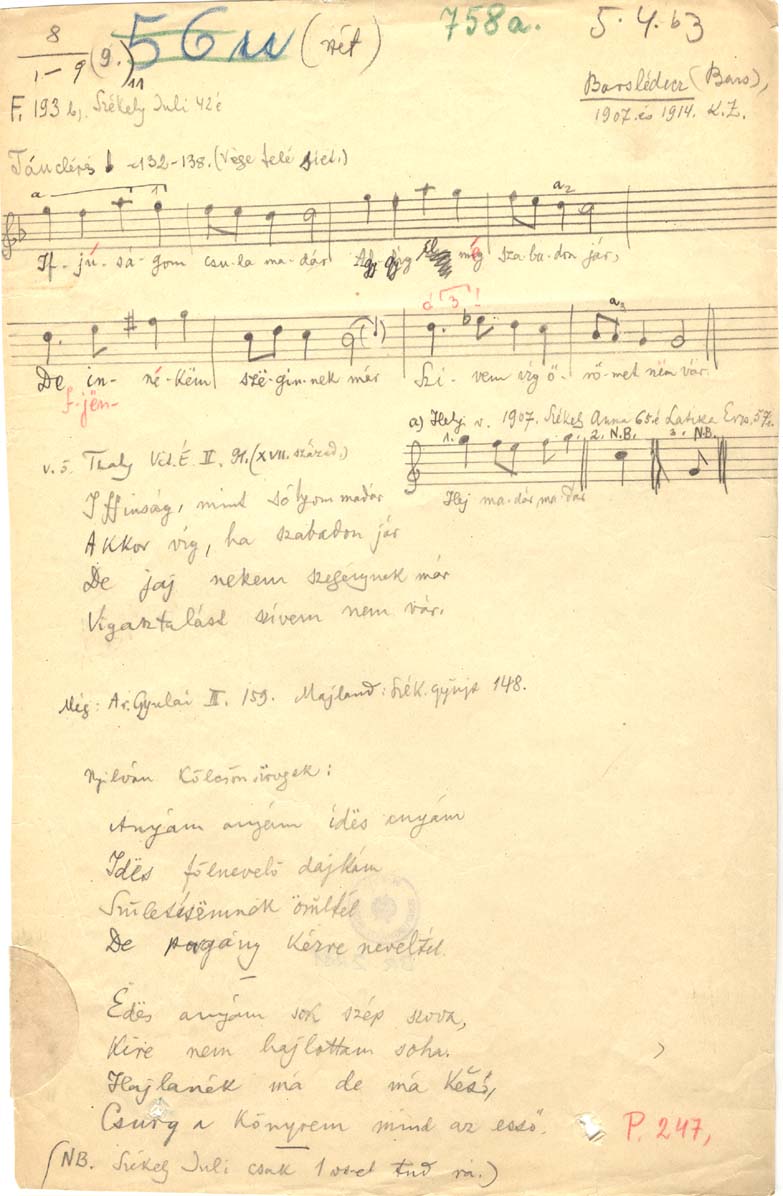 8
1-9 (9.) 56 (vét) 758a. 5.4.63
11
Barslédecz (Bars),
F. 193 b, Székely Juli 42 é
1907. és 1914. K.Z.
Tánclépés 132-138. (Vége felé siet.)
a 1 a2
If-jú-sá-gom csu-la ma-dár míg sza-ba-don jár,
ó 3 ! a3
De in-né-këm szë-gín-nek már Szí-vem víg ö-rö-met nëm vár.
f-jën-
a) Helyi v. 1907. Székely Anna 65 é Latika Erzs. 57
1. 2. N.B. 3. N.B.
Hej ma-dár, ma-dár
v. ö. Thaly Vit. É. II. 91. (XVII. század.)
Iffiuság, mint sólyom madár
Akkor víg, ha szabadon jár
De jaj nekem szegénynek már
Vigasztalást szívem nem vár.
Még: Ar. Gyulai III. 159. Majland: Szék. gyüjt 148.
Nyilván kölcsönszövegek:
Anyám anyám idës anyám
Idës fölnevelő dajkám
Születésëmnek örültél
De pogány kézre neveltél.
Édës anyám sok szép szova,
Kire nem hajlottam soha.
Hajlanék má de má késő,
Csurg a könyvem mind az esső.
P. 247,
(NB. Székely Juli csak 1 vs-et tud rá.)